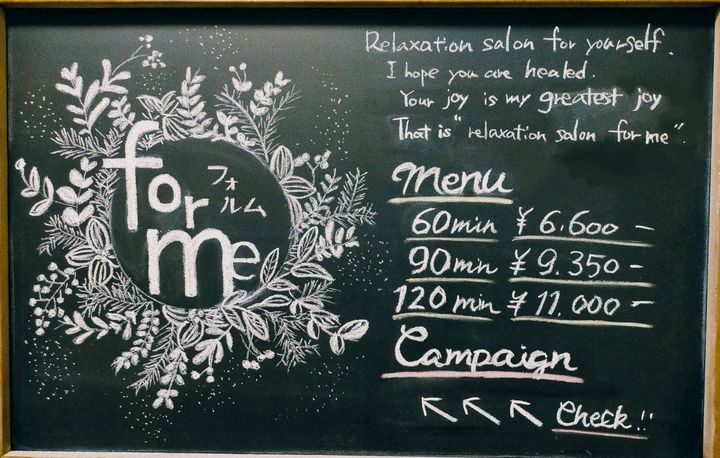 for
me
フォ
ルム
Relaxation salon for yourself.
I hope you are healed.
Your joy is my greatest joy
That is "relaxation salon for me".
Menu
60min ¥6.600-
90min ¥9.350-
120min ¥11.000-
Campaign
↖↖↖ Check!!